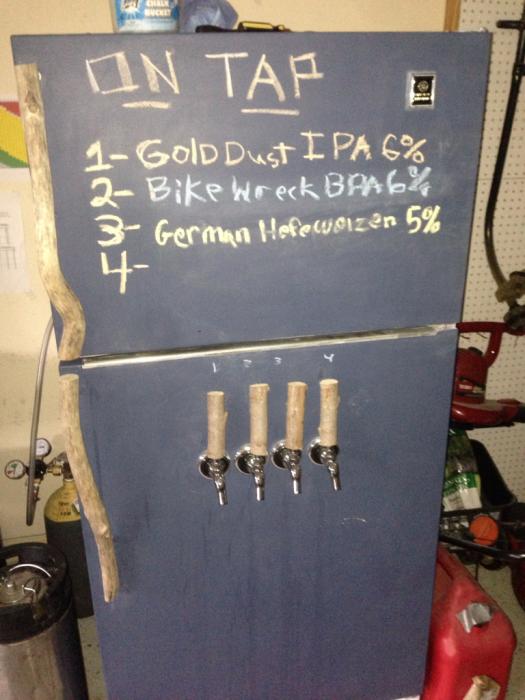 CHALK
BUCKET
ON TAP
1- Gold Dust IPA 6%
2- Bike Wreck BPA 6%
3- German Hefeweizen 5%
4-
1 2 3 4